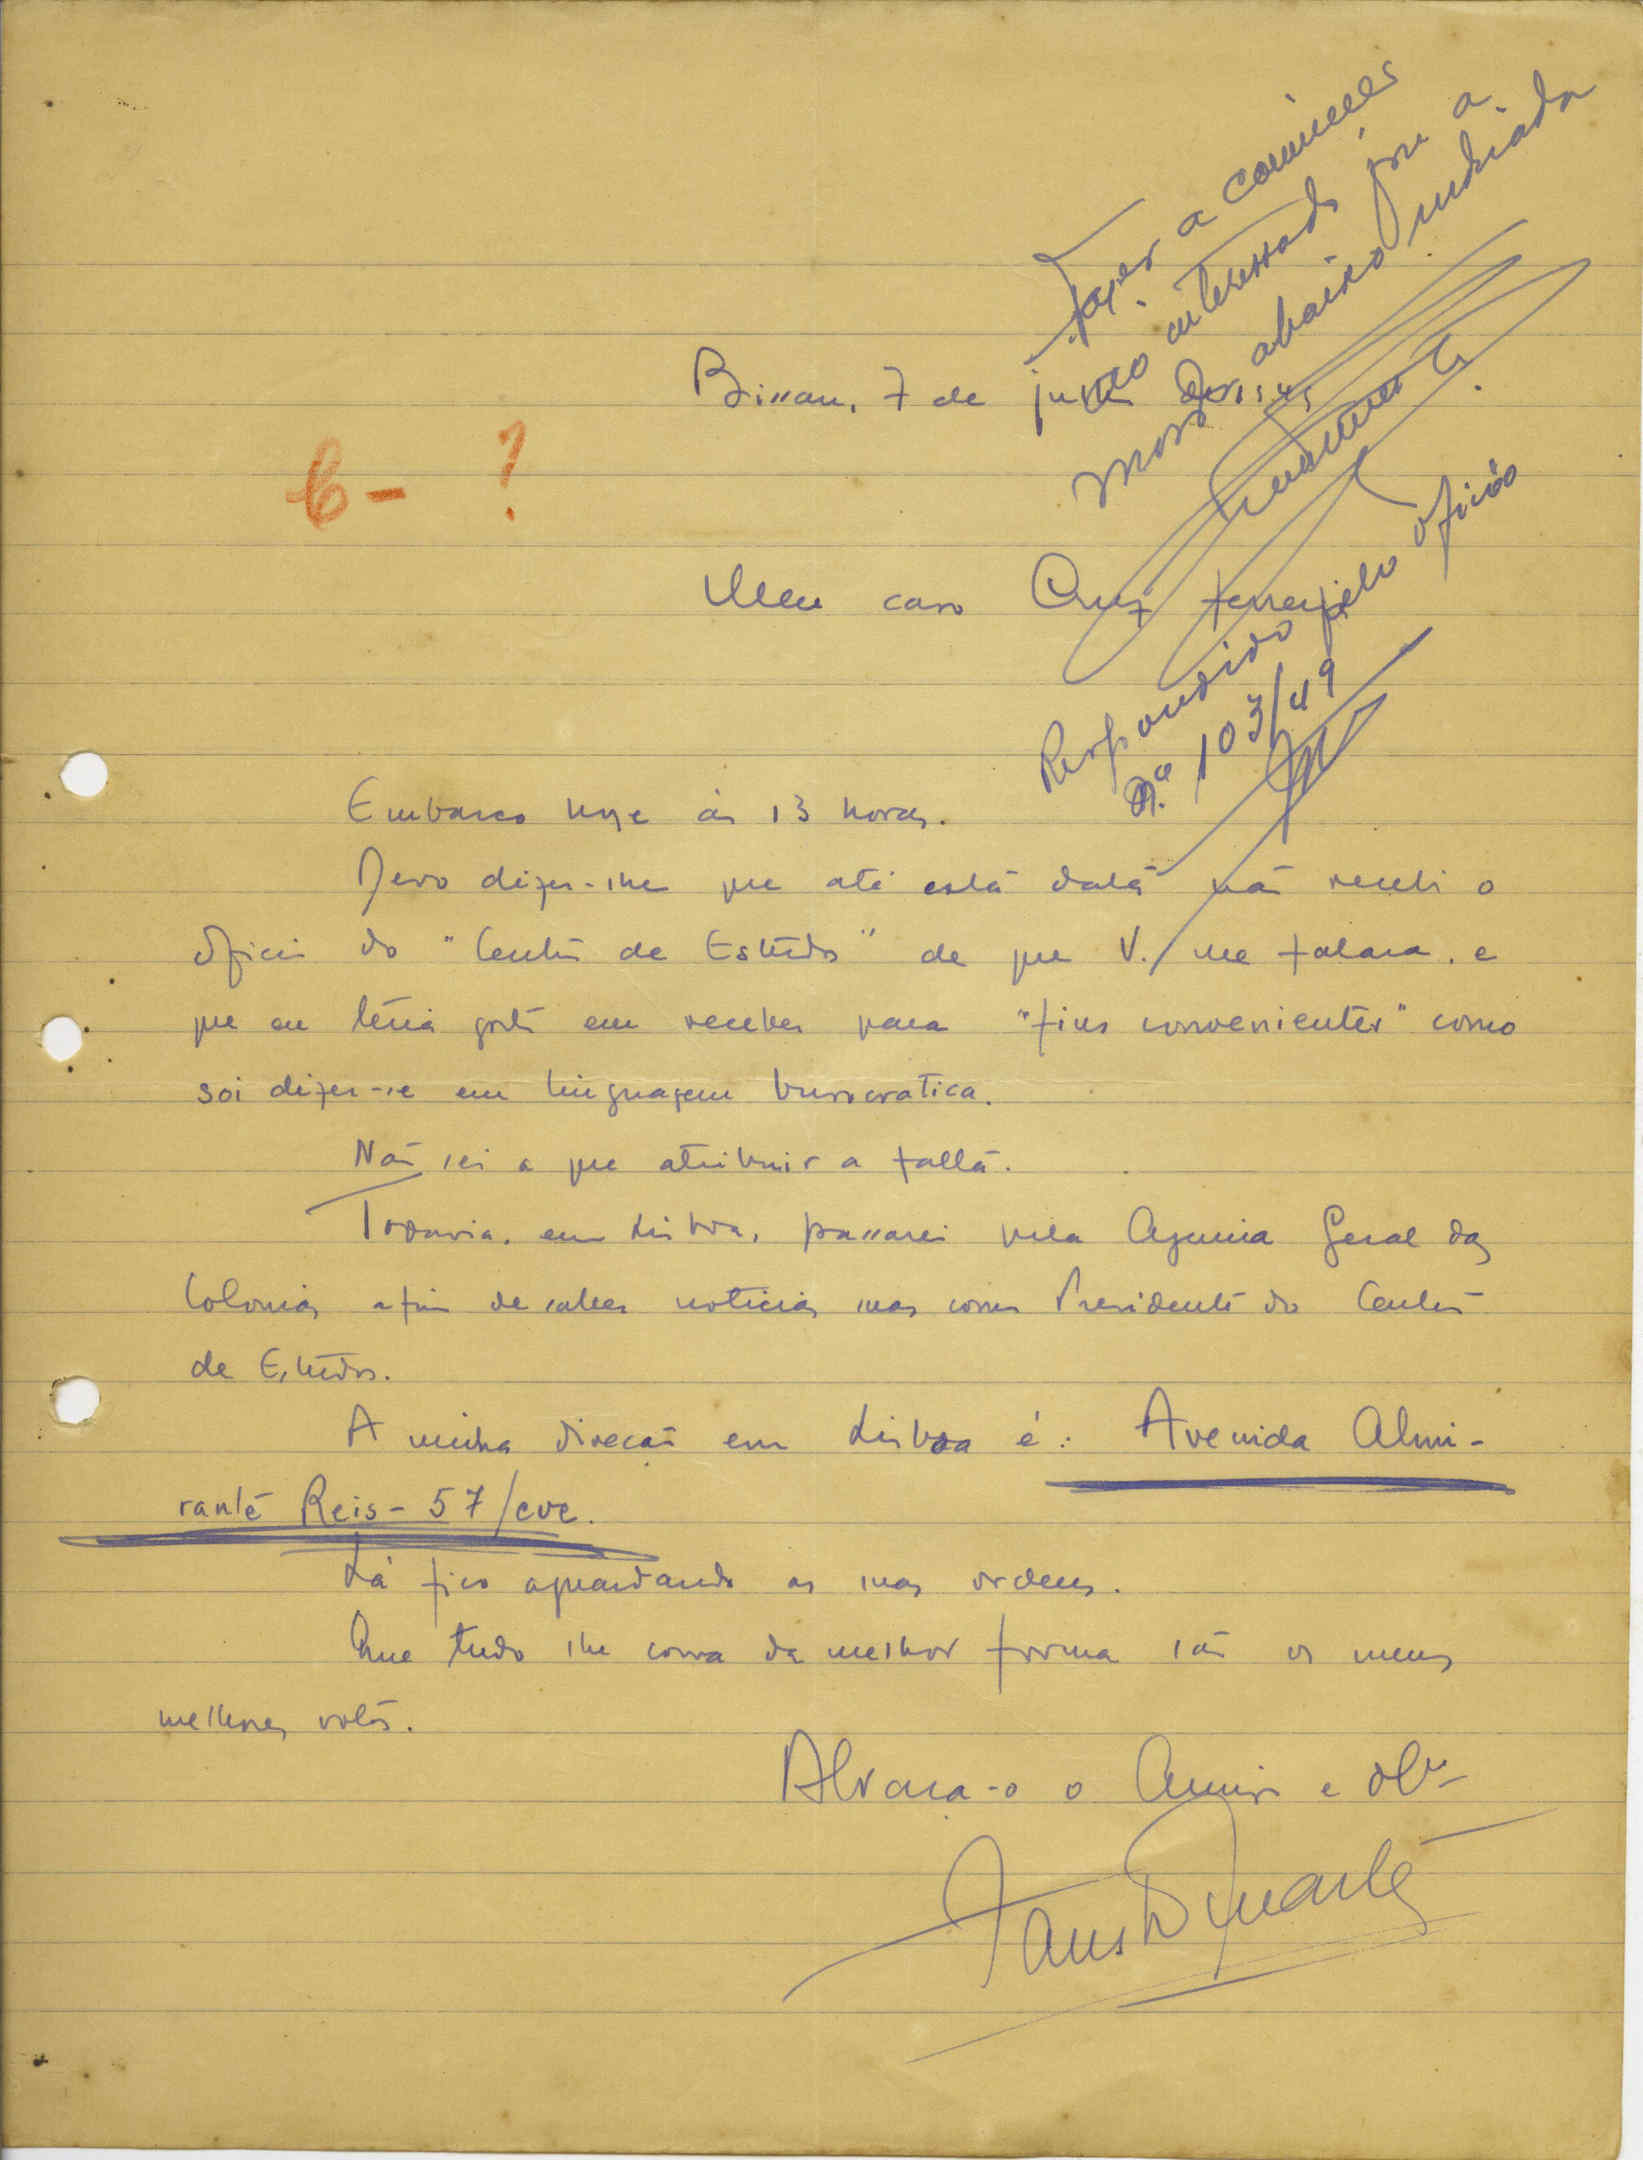 Fazer a comunicação
ao interessado para a
morada abaixo indicada
Bissau, 7 de
6 - ?
Meu caro Cruz Ferreira
Respondido pelo ofício
n.º 103/49
Embarco hoje às 13 horas.
Devo dizer-lhe que até esta data não recebi o
ofício do "Centro de Estudos" de que V. me falara, e
que eu teria gosto em receber para "fins convenientes" como
soi dizer-se em linguagem burocratica.
Não sei a que atribuir a falta.
Todavia, em Lisboa, passarei pela Agencia Geral das
Colonias afim de saber noticias suas como Presidente do Centro
de Estudos.
A minha direcção em Lisboa é: Avenida Almi-
rante Reis - 57/cve.
Lá fico aguardando as suas ordens.
Que tudo lhe corra da melhor forma são os meus
melhores votos.
Abraça-o o Amigo e obº
Fausto Duarte